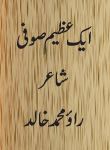 ایک عظیم صوفی
شاعر
راؤ محمد خالد